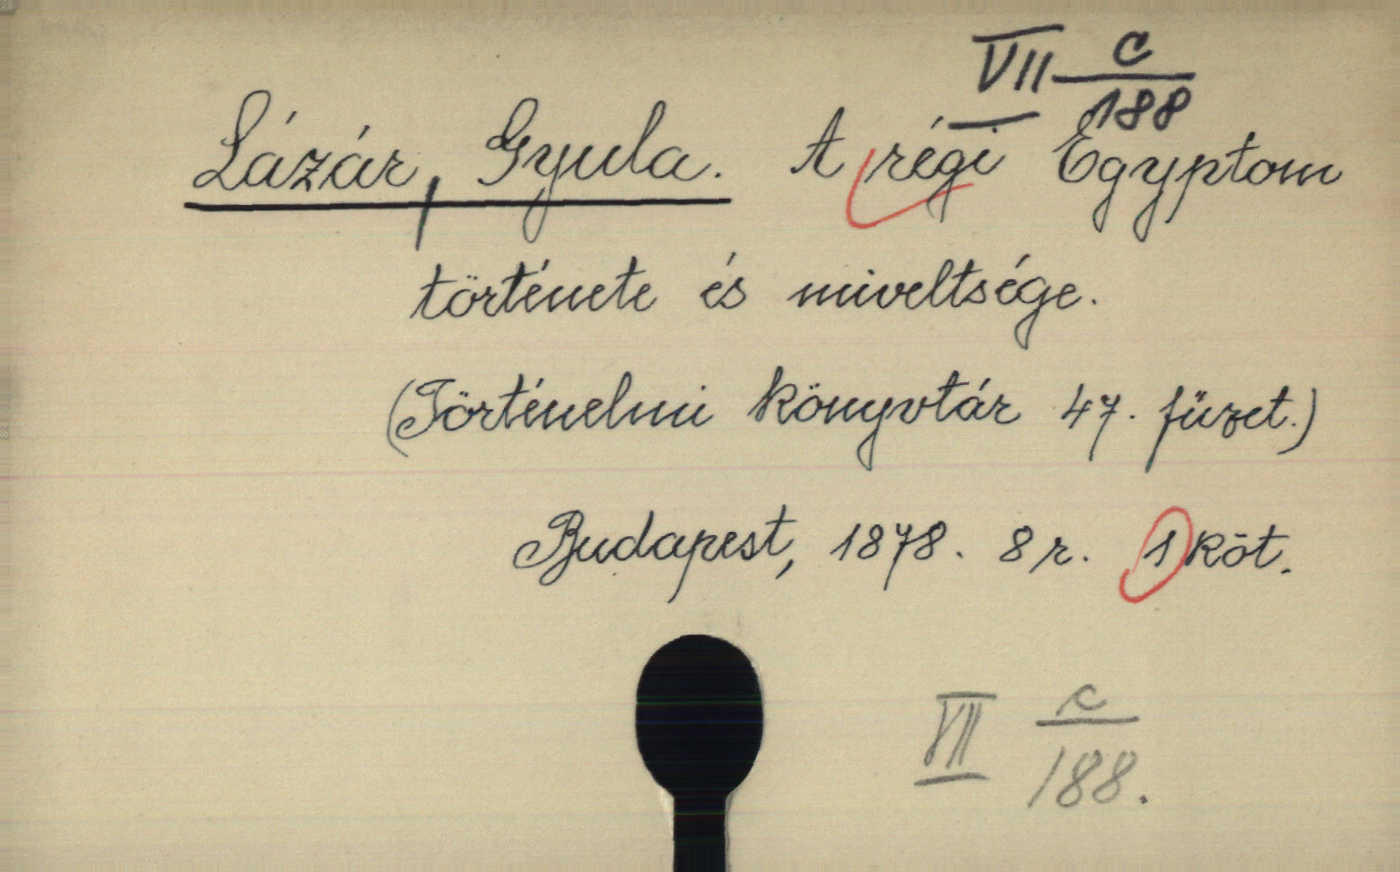 VII C/188
Lázár, Gyula. A régi Egyptom
története és miveltsége.
(Történelmi könyvtár 47. füzet.)
Budapest, 1878. 8 r. 1 köt.
VII c/188.